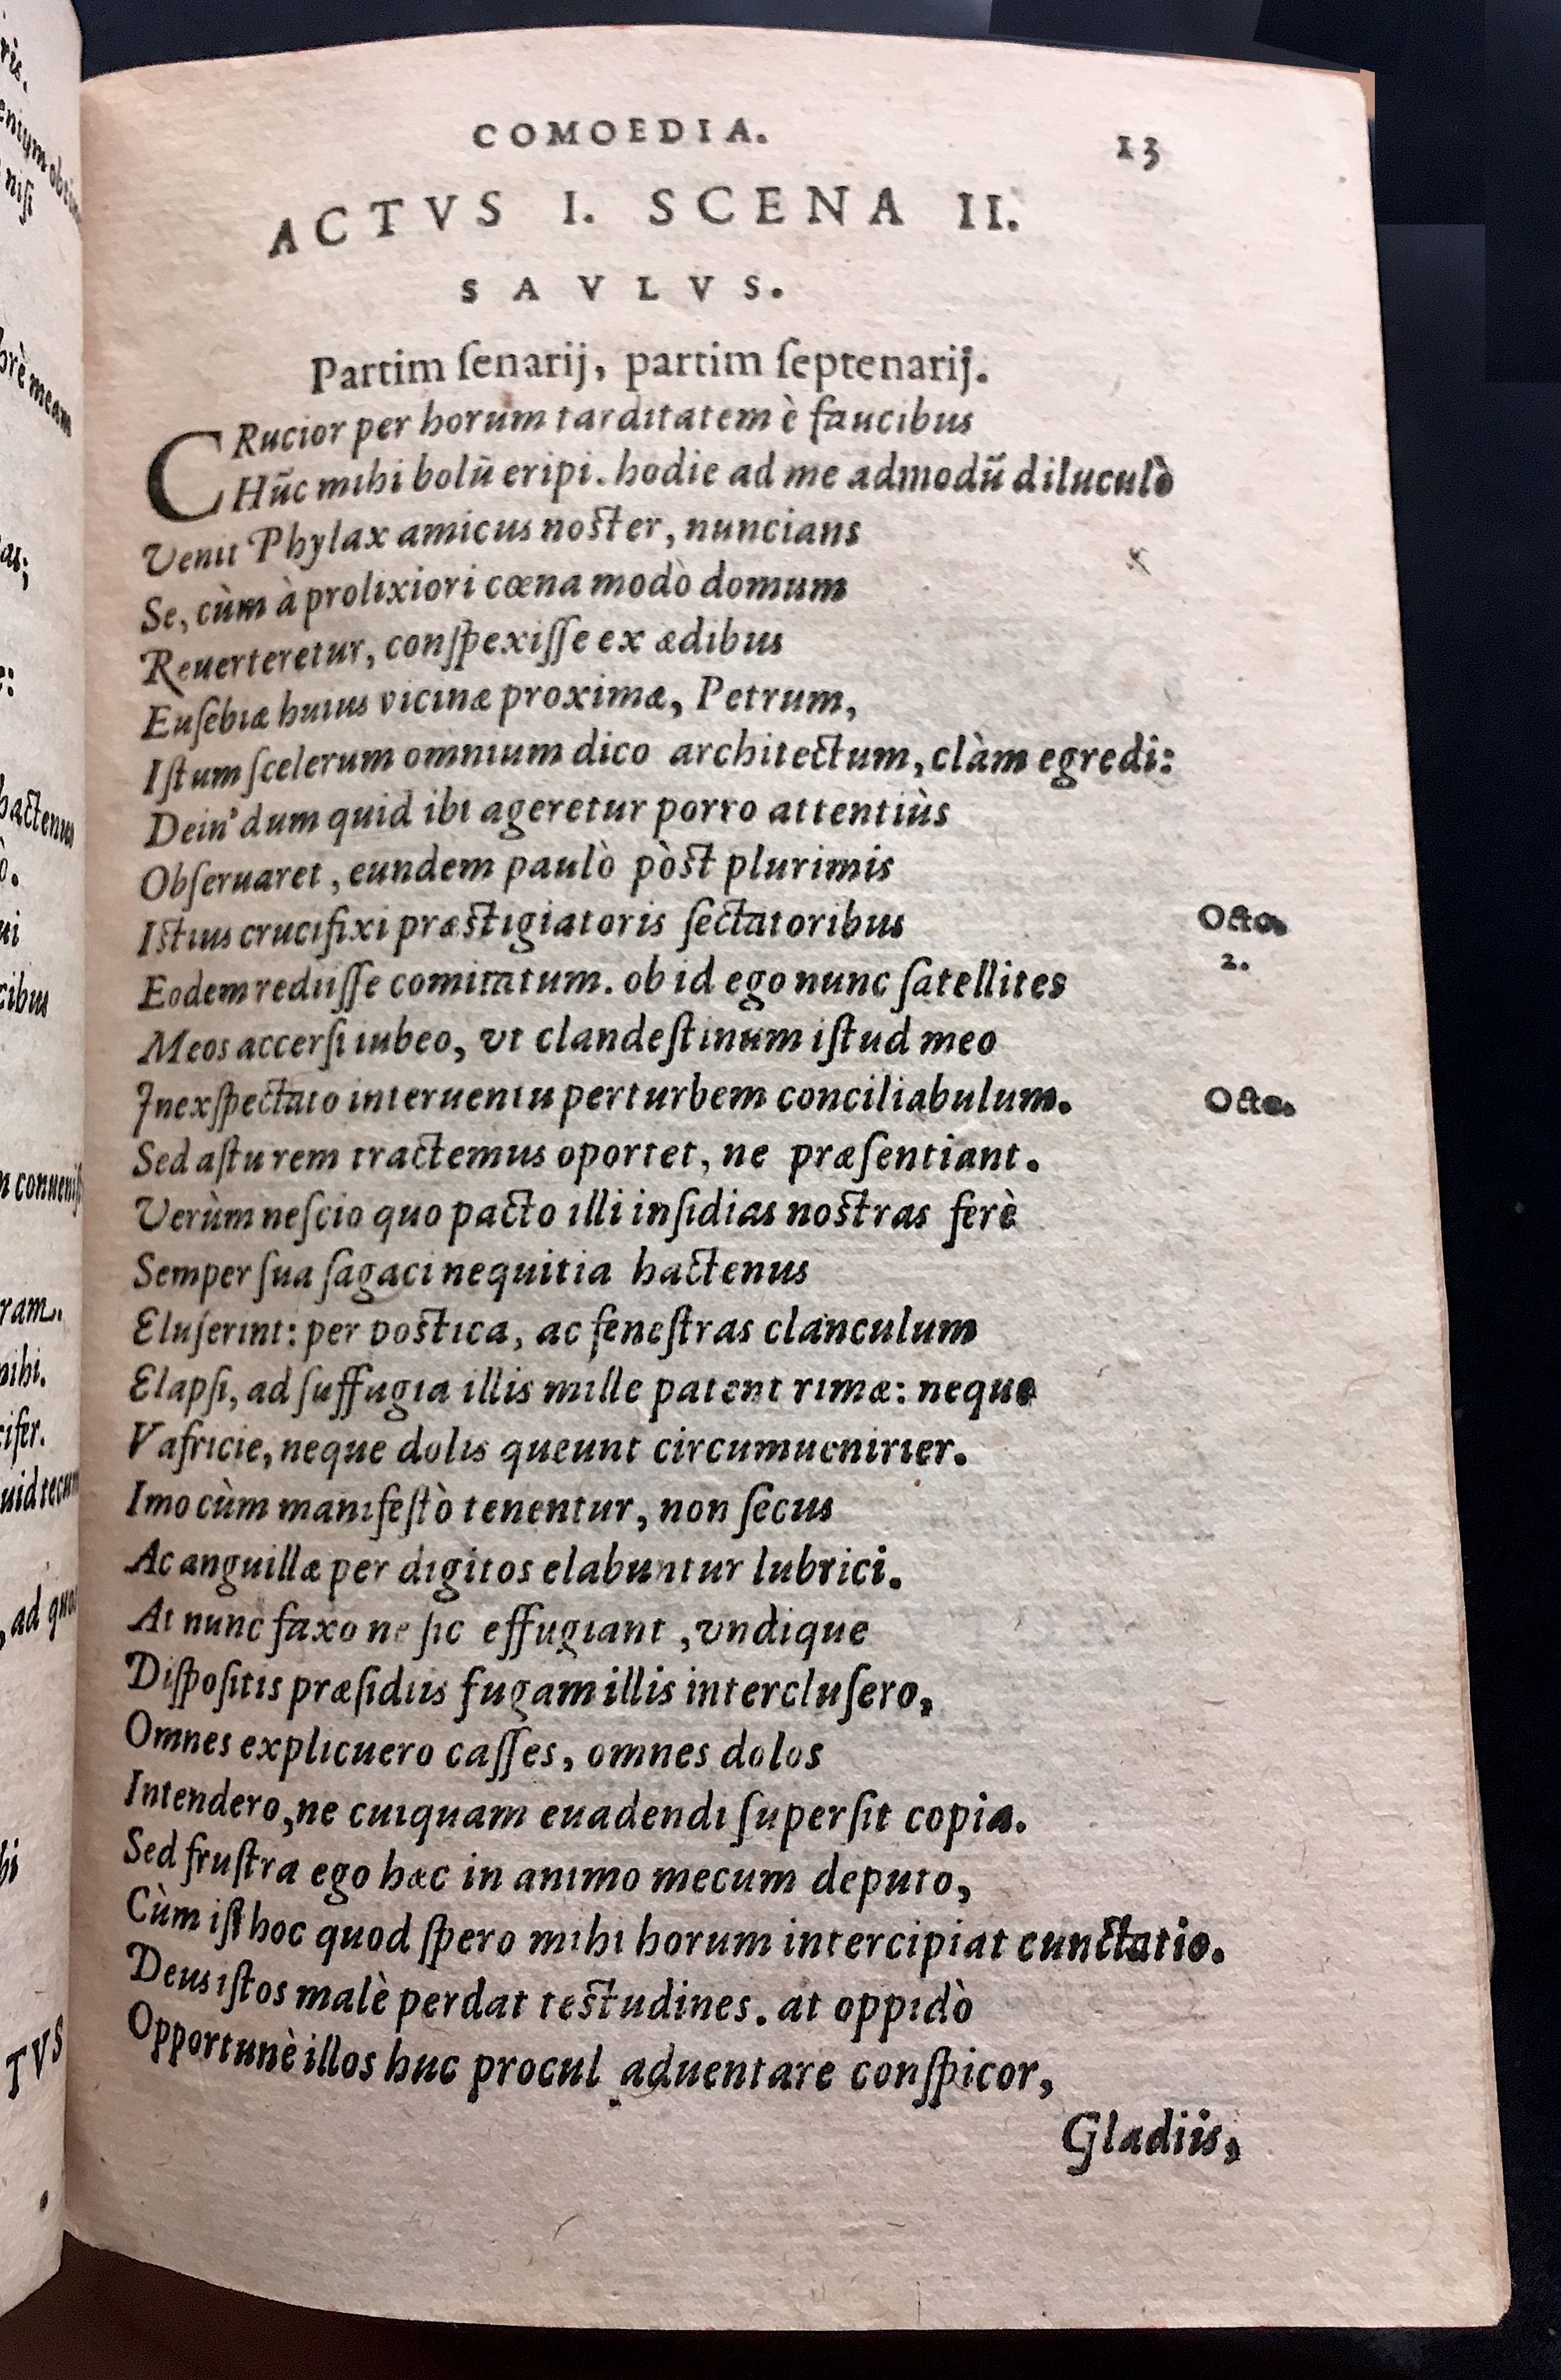 COMOEDIA. 13
ACTVS I. SCENA II.
SAVLVS.
Partim ſenarij, partim ſeptenarij.
CRucior per horum tarditatem è faucibus
Hũc mihi bolũ eripi. hodie ad me admodũ diluculò
Venit Phylax amicus noſter, nuncians
Se, cùm à prolixiori cœna modò domum
Reuerteretur, conſpexiſſe ex ædibus
Euſebiæ huius vicinæ proximæ, Petrum,
Iſtum ſcelerum omnium dico architectum, clàm egredi:
Dein' dum quid ibi ageretur porro attentiùs
Obſeruaret, eundem paulò pòſt plurimis
Iſtius crucifixi præſtigiatoris ſectatoribus Octo.
2.
Eodem rediiſſe comitatum. ob id ego nunc ſatellites
Meos accerſi iubeo, vt clandeſtinum iſtud meo
Inexſpectato interuentu perturbem conciliabulum. Octo.
Sed aſtu rem tractemus oportet, ne præſentiant.
Verùm neſcio quo pacto illi inſidias noſtras ferè
Semper ſua ſagaci nequitia hactenus
Eluſerint: per poſtica, ac feneſtras clanculum
Elapſi, ad ſuffugia illis mille patent rimæ: neque
Vafricie, neque dolis queunt circumuenirier.
Imo cùm manifeſtò tenentur, non ſecus
Ac anguillæ per digitos elabuntur lubrici.
At nunc faxo ne ſic effugiant, vndique
Diſpoſitis præſidiis fugam illis intercluſero,
Omnes explicuero caſſes, omnes dolos
Intendero, ne cuiquam euadendi ſuperſit copia.
Sed fruſtra ego hæc in animo mecum deputo,
Cùm iſthoc quod ſpero mihi horum intercipiat cunctatio.
Deus iſtos malè perdat teſtudines. at oppidò
Opportunè illos huc procul aduentare conſpicor,
Gladiis,